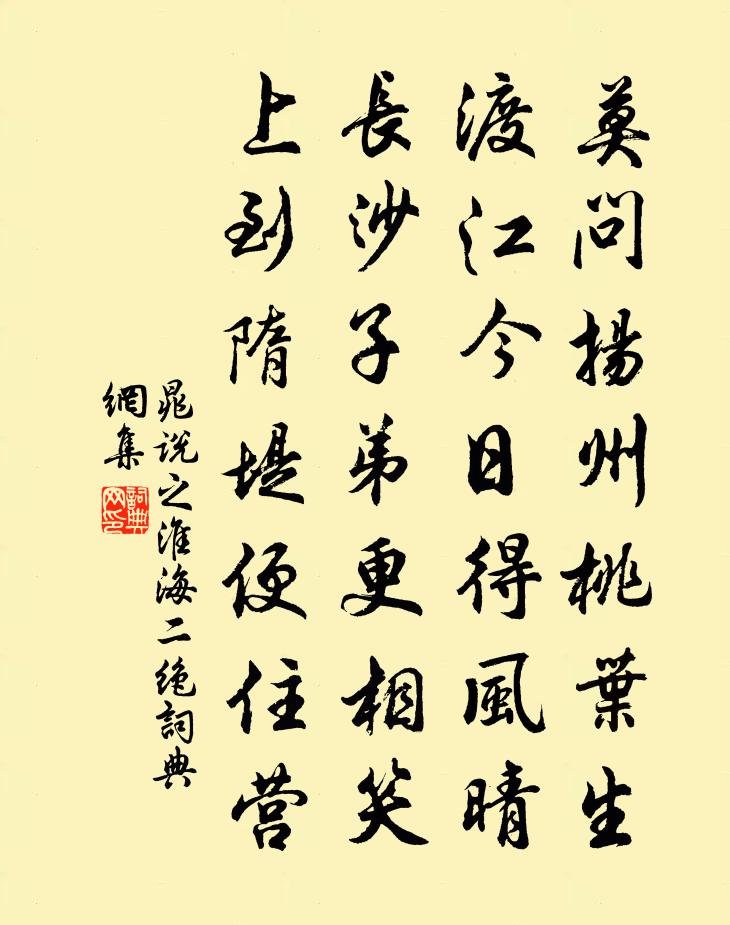 莫問揚州桃葉生
渡江今日得風晴
長沙子弟更相笑
上到隋堤便住营
晁说之淮海二绝詞典
網集
詞典网印